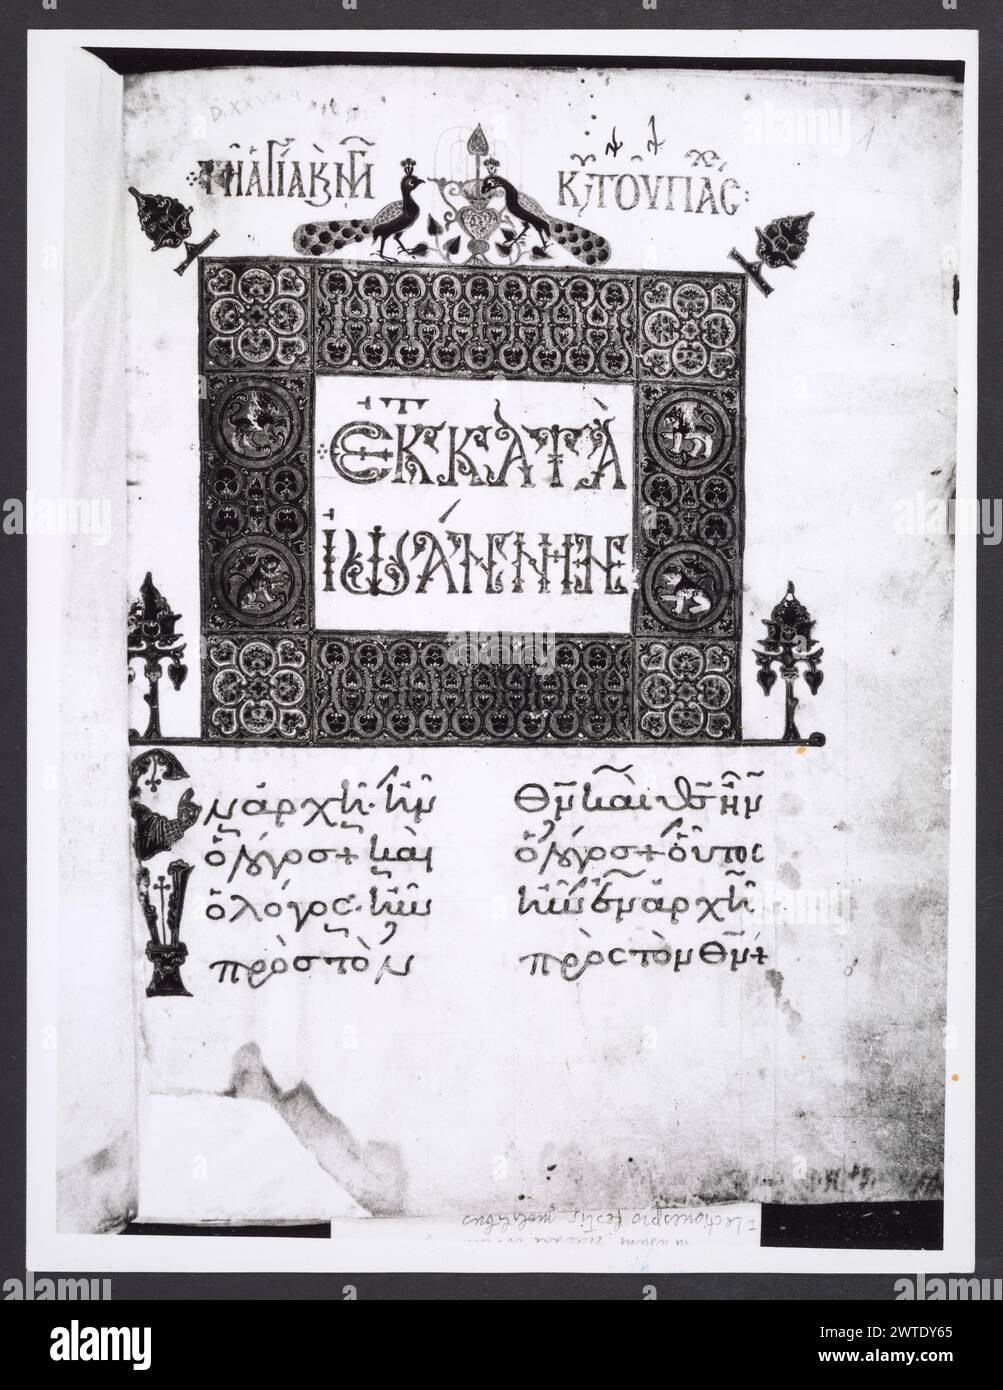 D.XXVII.4
1
ΤΗ ΑΓΙΑ Κ, ΜΓ
Κ, ΤΟΥ ΠΑΣ
ΕΚ Κ ΚΑΤΑ
ΙΩΑΝΝΗΝ
Ἐν ἀρχῆ ἦν
ὁ λόγος + καὶ
ὁ λόγος ἦν
πρὸς τὸν
θν καὶ θς ἦν
ὁ λόγος + οὗτος
ἦν ἐν ἀρχῆ
πρὸς τὸν θν +
Lectiones pro festis mobilibus
alamy
Image ID: 2WTDY65
www.alamy.com